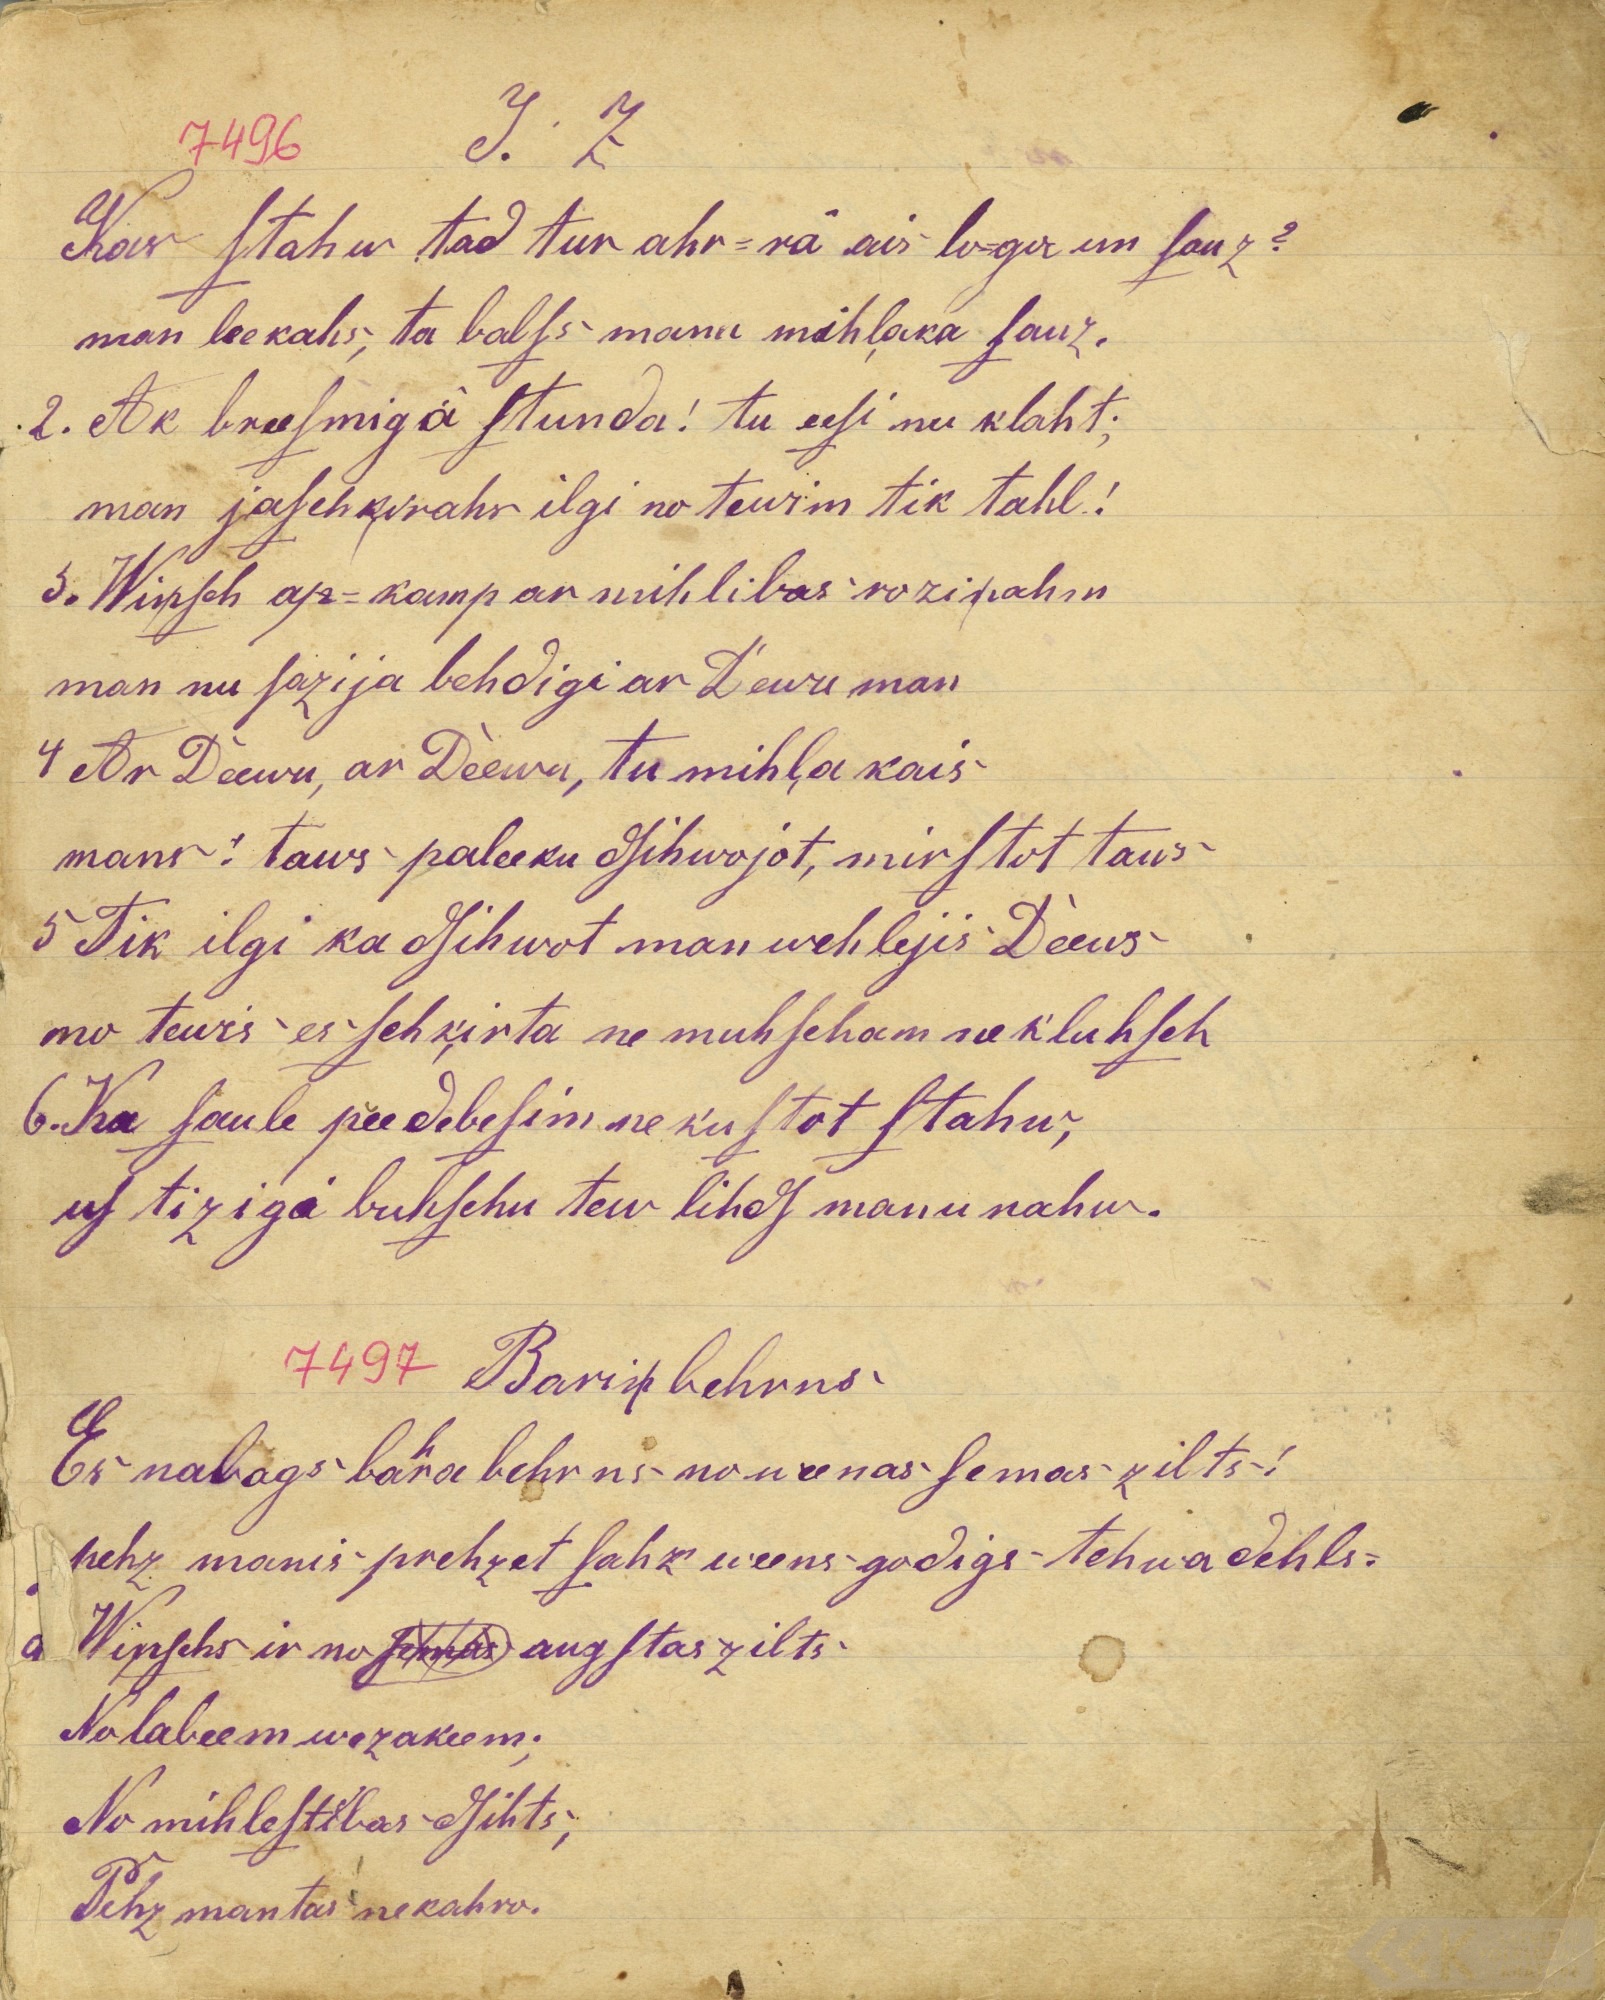 7496 J. Z
Kas ſtahw tad tur ahr=râ ais lo=ga un ſauz?
man leekahs, ta balſs mana mihļaka ſauz.
2. Ak breeſmigâ ſtunda! tu eeſi nu klaht;
man jaſchķirahs ilgi no tewim tik tahl!
3. Wiņſch ap=kamp ar mihlibas roziņahm
man nu ſazija behdigi ar Dewu man
4 Ar Deewu, ar Deewu, tu mihļakais
mans! taws paleeku dſihwojot, mirſtot taws
5 Tik ilgi ka dſihwot man wehlejis Deews
no tewis es ſchķirta ne muhſcham nekluhſch
6. Ka ſaule pee debeſim nekuſtot ſtahw,
uſ tizigâ buhſchu tew lihdſ manu nahw.
7497 Bariņ behrns
Es nabags bahra behrns no weenas ſemas zilts!
pehz manis prehzet ſahk weens godigs tehwa dehls.
Wiņſchs ir no ſemas augſtas zilts
No labeem wezakeem;
No mihleſtibas dſihts,
Pehz mantas nekahro.